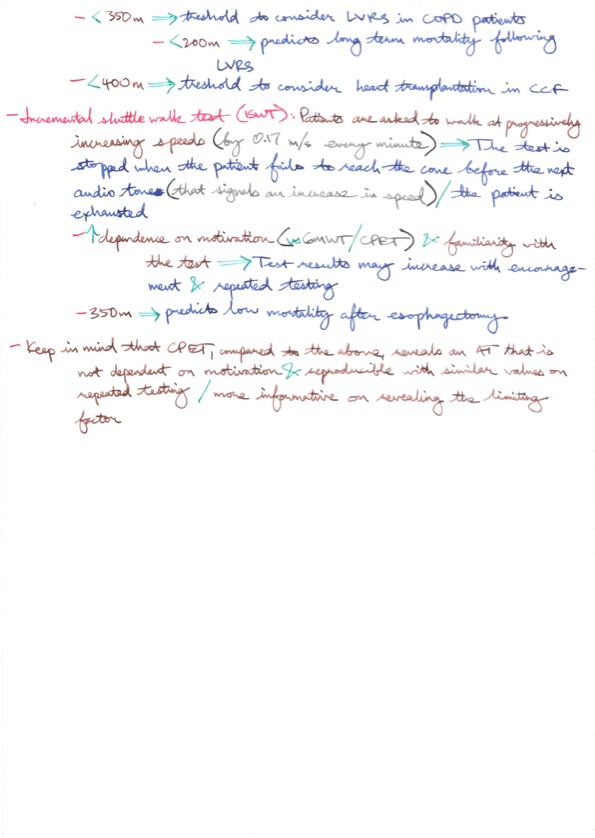 - <350m ⇒ treshold to consider LVRS in COPD patients
- <200m ⇒ predicts long term mortality following
LVRS
- <400m ⇒ treshold to consider heart transplantation in CCF
- Incremental shuttle walk test (ISWT): Patients are asked to walk at progressively
increasing speeds (by 0.17 m/s every minute) ⇒ The test is
stopped when the patient fails to reach the cone before the next
audio tone (that signals an increase in speed) / the patient is
exhausted
- ↑ dependence on motivation (vs 6MWT/CPET) & familiarity with
the test ⇒ Test results may increase with encourage-
ment & repeated testing
- 350m ⇒ predicts low mortality after esophagectomy
- Keep in mind that CPET, compared to the above, reveals an AT that is
not dependent on motivation & reproducible with similar values on
repeated testing / more informative on revealing the limiting
factor